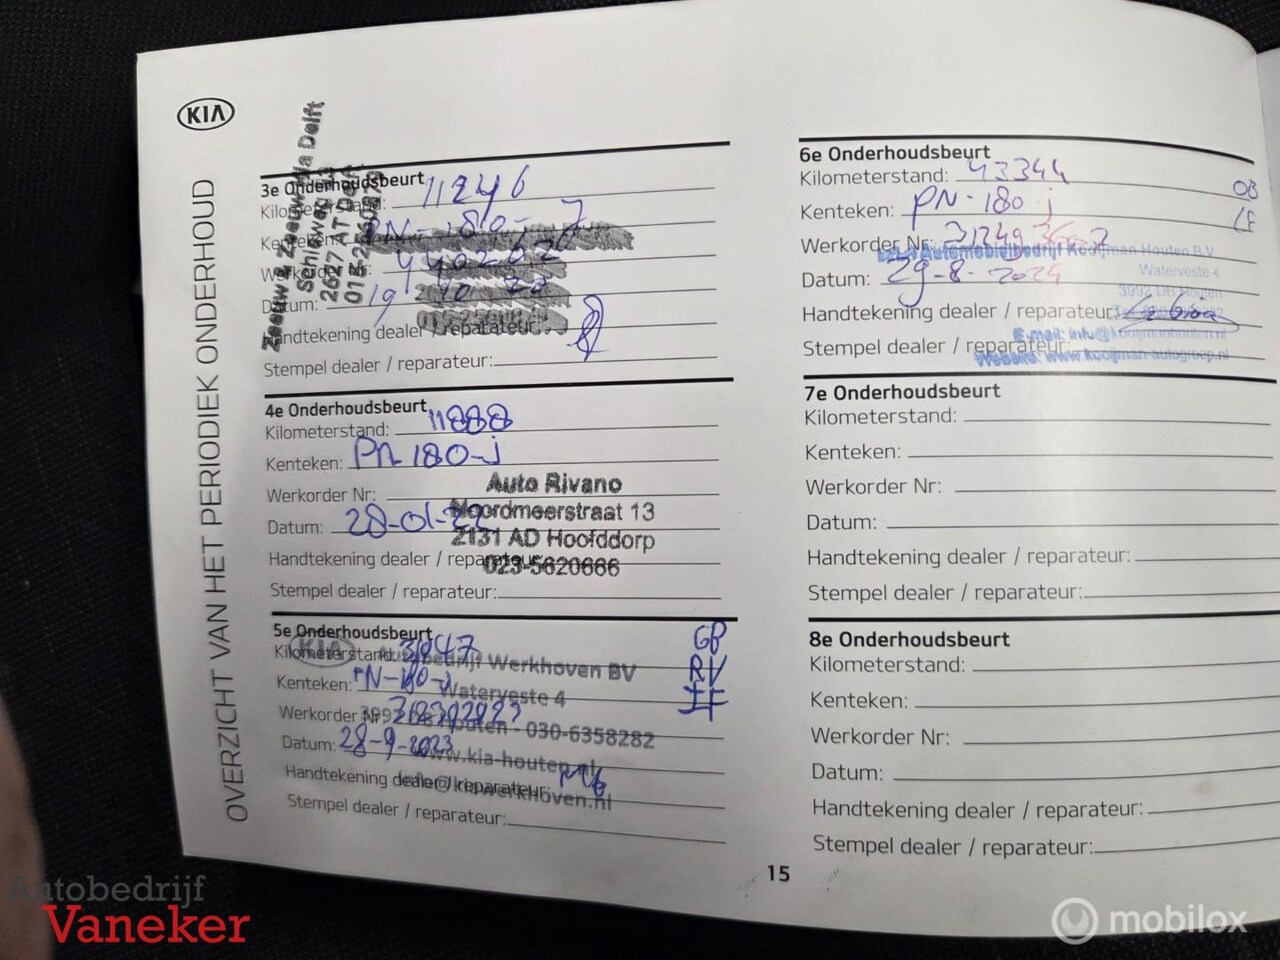 KIA
OVERZICHT VAN HET PERIODIEK ONDERHOUD
3e Onderhoudsbeurt
Kilometerstand: 11246
Kenteken: PN-180-J
Datum: 19
Handtekening dealer / reparateur:
Stempel dealer / reparateur:
Zeeuw & Zeeuw Kia Delft
Schieweg
2627 AT Delft
4e Onderhoudsbeurt
Kilometerstand: 11888
Kenteken: PN 180-j
Werkorder Nr:
Datum: 28-01-22
Handtekening dealer / reparateur:
Stempel dealer / reparateur:
Auto Rivano
Noordmeerstraat 13
2131 AD Hoofddorp
023-5620666
5e Onderhoudsbeurt
Kilometerstand:
Kenteken: PN-180-j
Werkorder Nr:
Datum: 28-9-2023
Handtekening dealer / reparateur:
Stempel dealer / reparateur:
KIA Autobedrijf Werkhoven BV
Waterveste 4
Houten - 030-6358282
www.kia-houten.nl
info@kiawerkhoven.nl
GB
RV
IF
6e Onderhoudsbeurt
Kilometerstand: 43344
Kenteken: PN-180 j
Werkorder Nr:
Datum: 29-8-2024
Handtekening dealer / reparateur:
Stempel dealer / reparateur:
OB
LF
Automobielbedrijf Kooijman Houten B.V.
Waterveste 4
3992 DB Houten
E-mail: info@kooijmanhouten.nl
Website: www.kooijman-autogroep.nl
7e Onderhoudsbeurt
Kilometerstand:
Kenteken:
Werkorder Nr:
Datum:
Handtekening dealer / reparateur:
Stempel dealer / reparateur:
8e Onderhoudsbeurt
Kilometerstand:
Kenteken:
Werkorder Nr:
Datum:
Handtekening dealer / reparateur:
Stempel dealer / reparateur:
15
Autobedrijf
Vaneker
mobilox